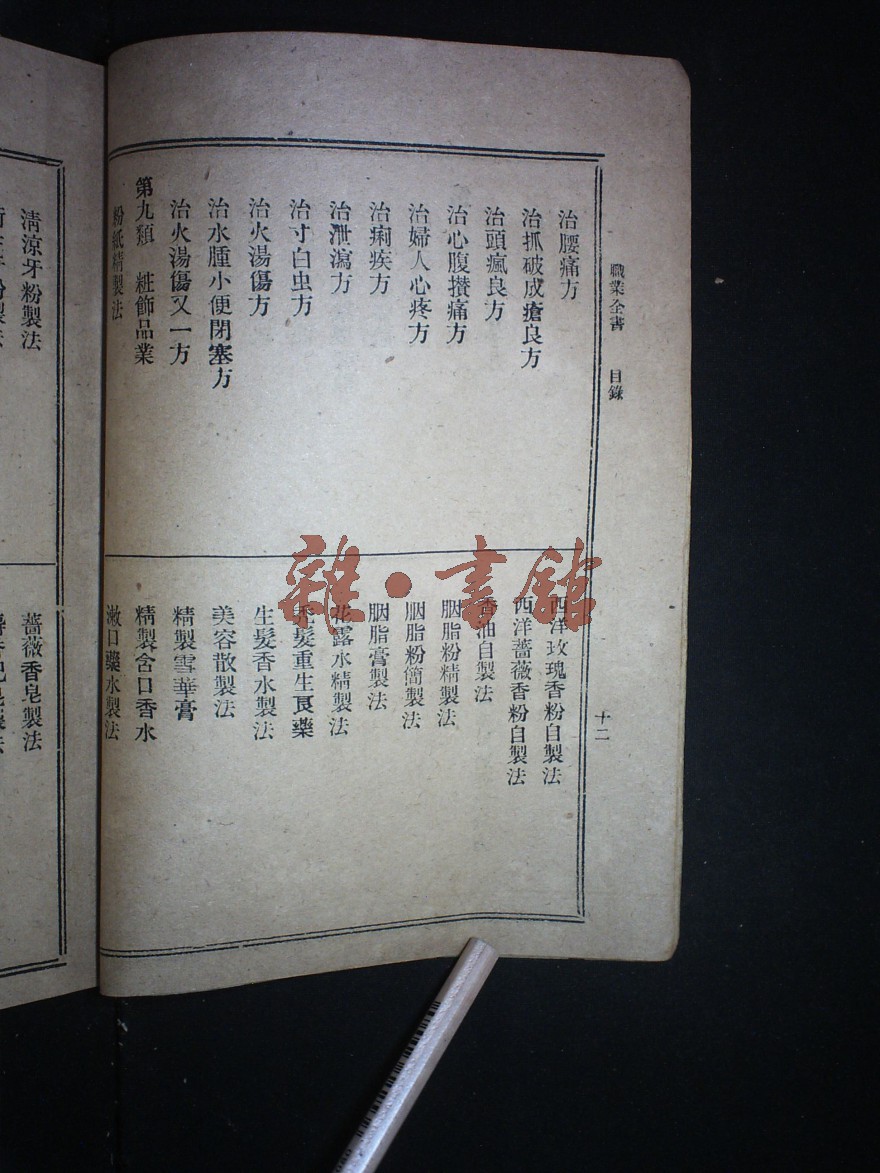 職業全書 目錄
十二
治腰痛方
治抓破成瘡良方
治頭瘋良方
治心腹攢痛方
治婦人心疼方
治痢疾方
治泄瀉方
治寸白虫方
治火湯傷方
治水腫小便閉塞方
治火湯傷又一方
第九類 粧飾品業
粉紙精製法
西洋玫瑰香粉自製法
西洋薔薇香粉自製法
香油自製法
胭脂粉精製法
胭脂粉簡製法
胭脂膏製法
花露水精製法
禿髮重生良藥
生髮香水製法
美容散製法
精製雪華膏
精製含口香水
漱口藥水製法
清涼牙粉製法
薔薇香皂製法
雜·書館